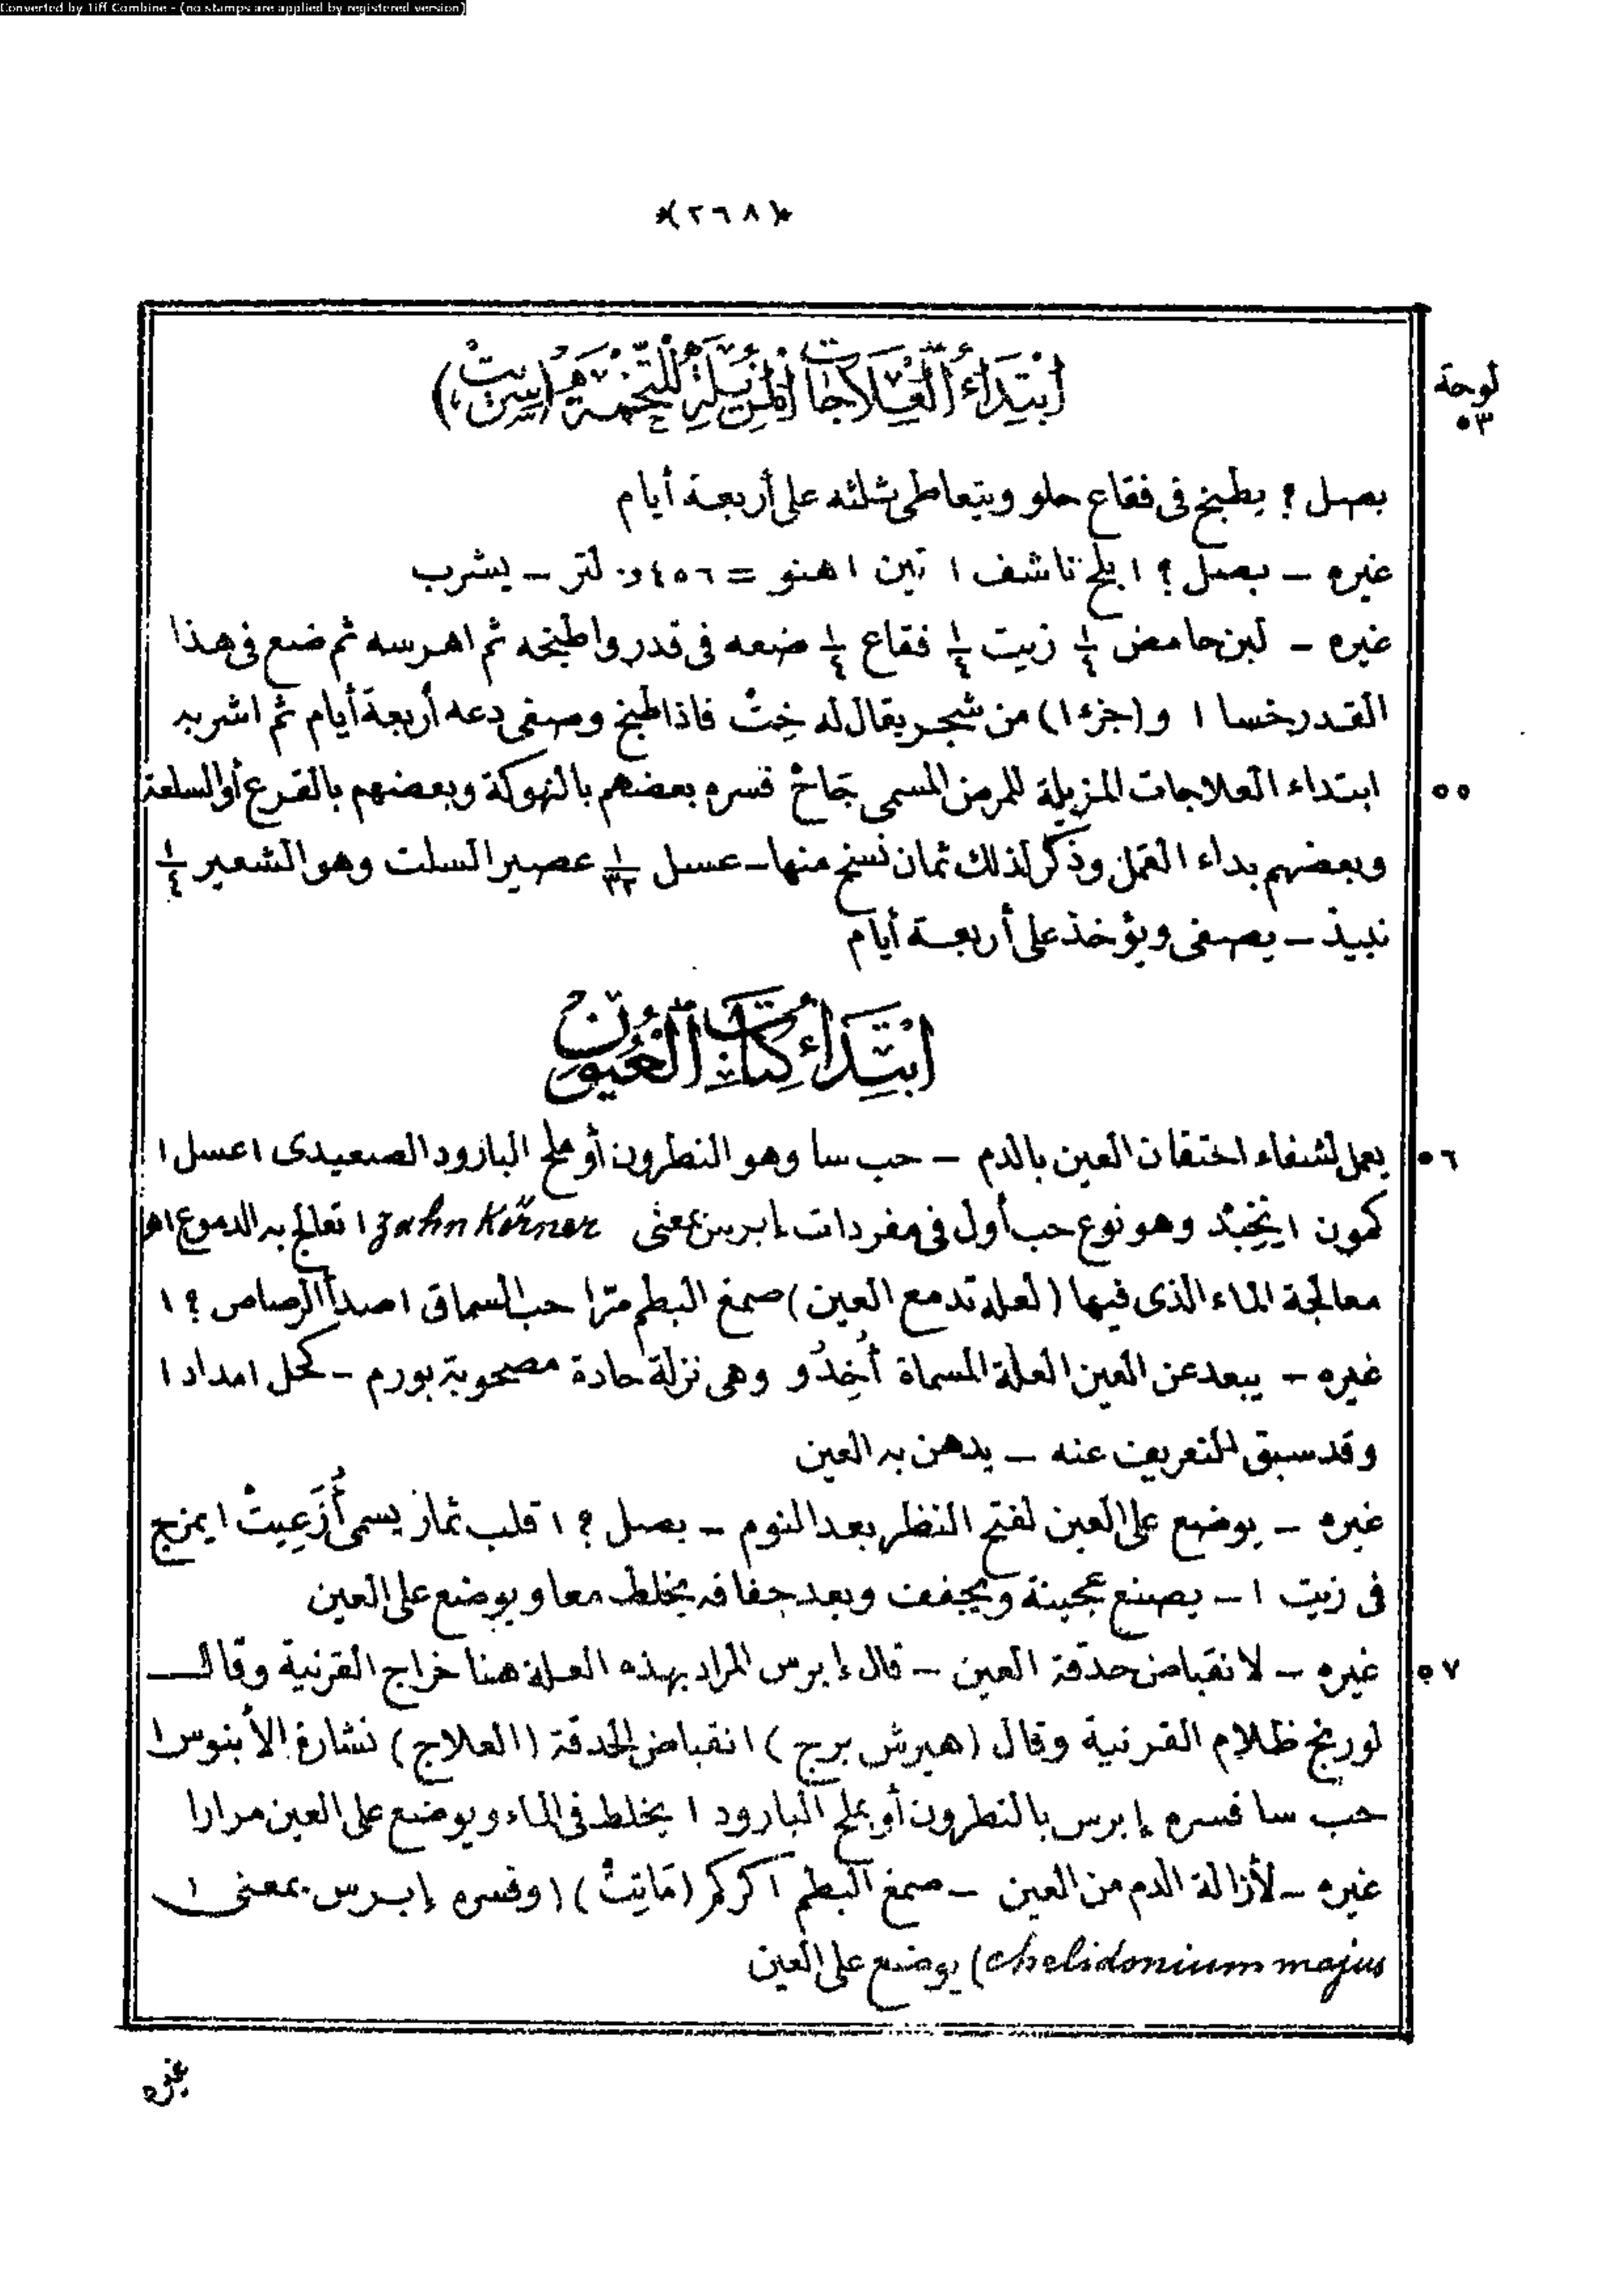 Converted by Tiff Combine - (no stamps are applied by registered version)
*(٢٦٨)*
لوحة
٥٣
ابتداء العلاجات المزيلة للتخمة (سريت)
بصل ؟ يطبخ فى فقاع حلو ويتعاطى ثلثه على أربعة أيام
غيره – بصل ؟ ١ بلح ناشف ١ تين ١ هنو = ٤٥٦و٠ لتر – يشرب
غيره – لبن حامض ١/٤ زيت ١/٤ فقاع ١/٤ ضعه فى قدر واطبخه ثم اهرسه ثم ضع فى هذا
القدر خسا ١ و(جزء ١) من شجر يقال له خِتْ فاذا طبخ وصفى دعه أربعة أيام ثم اشربه
٥٥ ابتداء العلاجات المزيلة للمرض المسمى جَاخْ فسره بعضهم بالنهوكة وبعضهم بالقرع أو السلعة
وبعضهم بداء القمل وذكر لذلك ثمان نسخ منها – عسل ١/٣٢ عصير السلت وهو الشعير ١/٤
نبيذ – يصفى ويؤخذ على أربعة أيام
ابتداء كتاب العيون
٥٦ يعمل لشفاء احتقان العين بالدم – حب سا وهو النطرون أو ملح البارود الصعيدى ١ عسل ١
كمون ١ وهو نوع حب أول فى مفردات إبرس بمعنى zahn Körner ١ تعالج به الدموع اهـ
معالجة الماء الذى فيها (لعله تدمع العين) صمغ البطم حب السماق ١ صدأ الرصاص ؟ ١
غيره – يبعد عن العين العلة المسماة أُخِدُو وهى نزلة حادة مصحوبة بورم – كحل ١ مداد ١
وقد سبق التعريف عنه – يدهن به العين
غيره – يوضع على العين لفتح النظر بعد النوم – بصل ؟ ١ قلب ثمار يسمى أُزَعِيتْ ١ يمزج
فى زيت ١ – يصنع عجينة ويجفف وبعد جفافه يخلط معا ويوضع على العين
٥٧ غيره – لانقباض حدقة العين – قال إبرس المراد بهذه العلة هنا خراج القرنية وقال
لورنج ظلام القرنية وقال (هيرش برج) انقباض الحدقة (العلاج) نشارة الأبنوس ١
حب سا فسره إبرس بالنطرون أو بملح البارود ١ يخلط فى الماء ويوضع على العين مرارا
غيره – لأزالة الدم من العين – صمغ البطم ١ كركم (مَاتِتْ) ١ (وفسره إبرس بمعنى ١
chelidonium majus) يوضع على العين
غيره